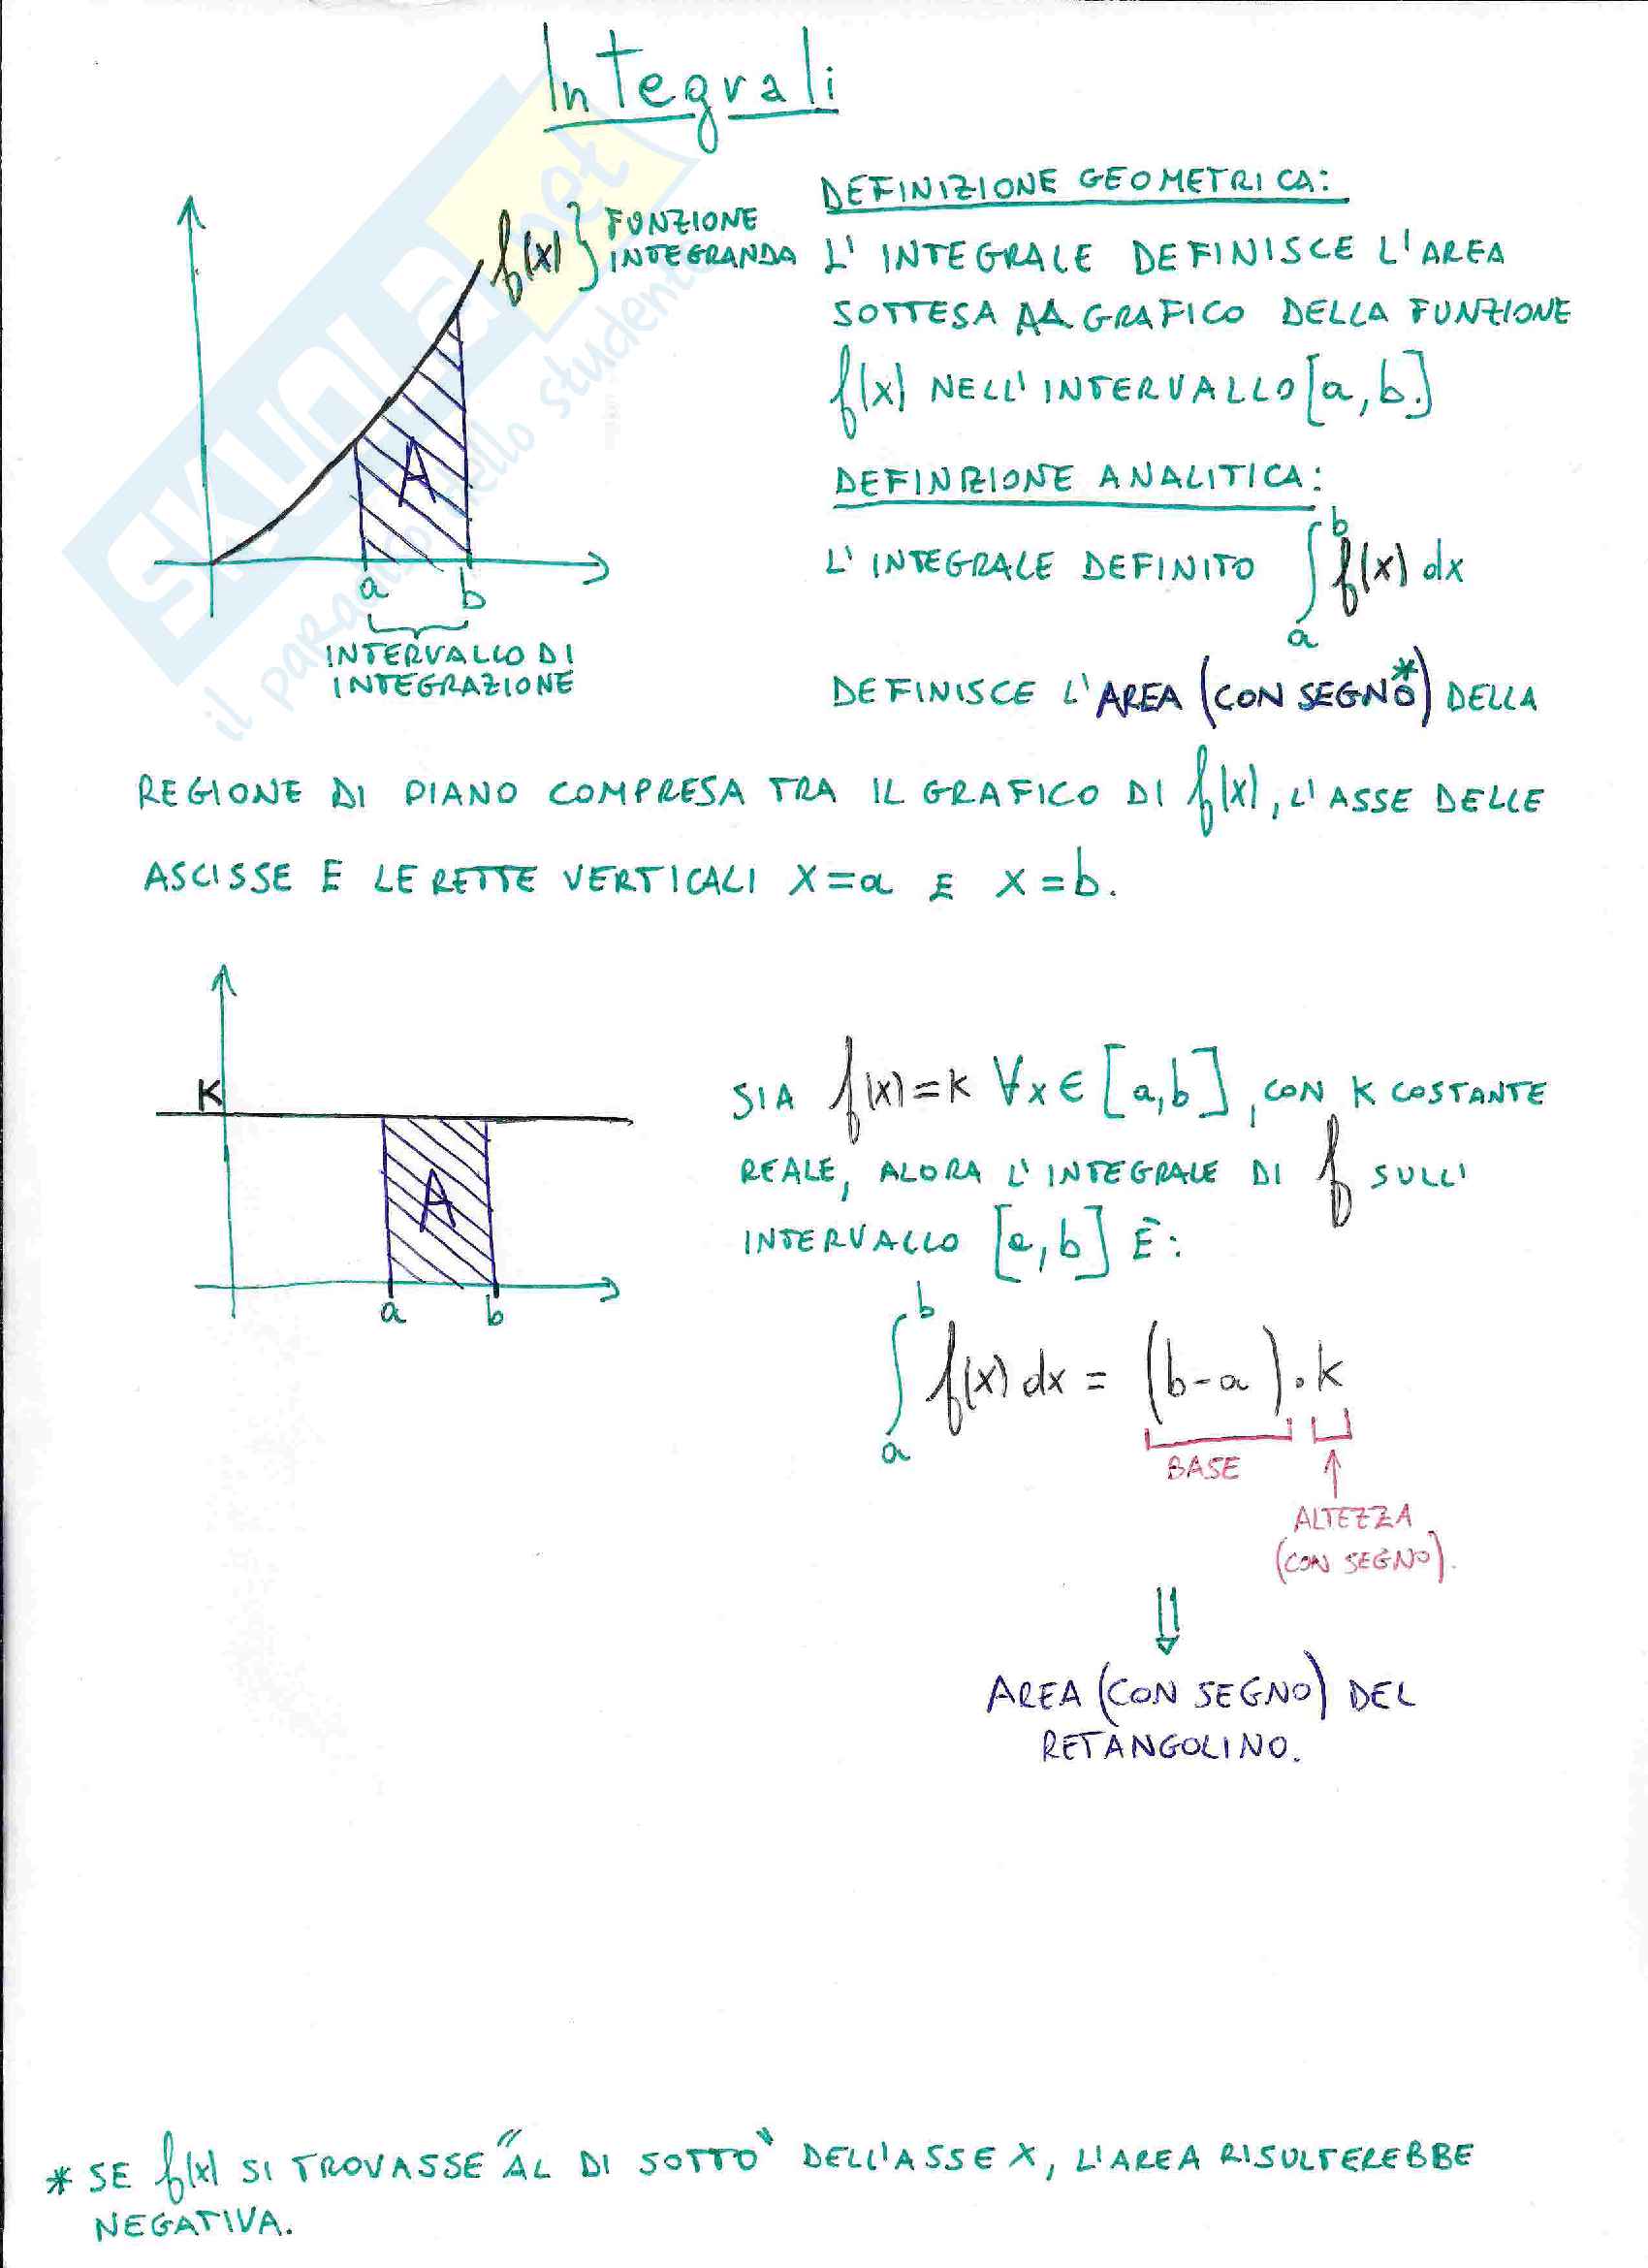 Integrali
DEFINIZIONE GEOMETRICA:
f(x) } FUNZIONE
INTEGRANDA
L' INTEGRALE DEFINISCE L'AREA
SOTTESA GRAFICO DELLA FUNZIONE
f(x) NELL'INTERVALLO [a,b.]
A
a b
INTERVALLO DI
INTEGRAZIONE
DEFINIZIONE ANALITICA:
L' INTEGRALE DEFINITO ∫ₐᵇ f(x) dx
DEFINISCE L'AREA (CON SEGNO*) DELLA
REGIONE DI PIANO COMPRESA TRA IL GRAFICO DI f(x), L'ASSE DELLE
ASCISSE E LE RETTE VERTICALI x=a E x=b.
K
A
a b
SIA f(x)=K ∀x∈[a,b], CON K COSTANTE
REALE, ALORA L'INTEGRALE DI f SULL'
INTERVALLO [a,b] È:
∫ₐᵇ f(x) dx = (b-a)·k
BASE
ALTEZZA
(CON SEGNO).
⇓
AREA (CON SEGNO) DEL
RETANGOLINO.
* SE f(x) SI TROVASSE "AL DI SOTTO" DELL'ASSE X, L'AREA RISULTEREBBE
NEGATIVA.
SKUOLA.net
il paradiso dello studente